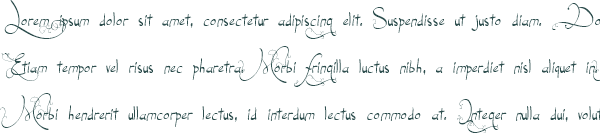 Lorem ipsum dolor sit amet, consectetur adipiscing elit. Suspendisse ut justo diam. Do
Etiam tempor vel risus nec pharetra. Morbi fringilla luctus nibh, a imperdiet nisl aliquet in.
Morbi hendrerit ullamcorper lectus, id interdum lectus commodo at. Integer nulla dui, volut